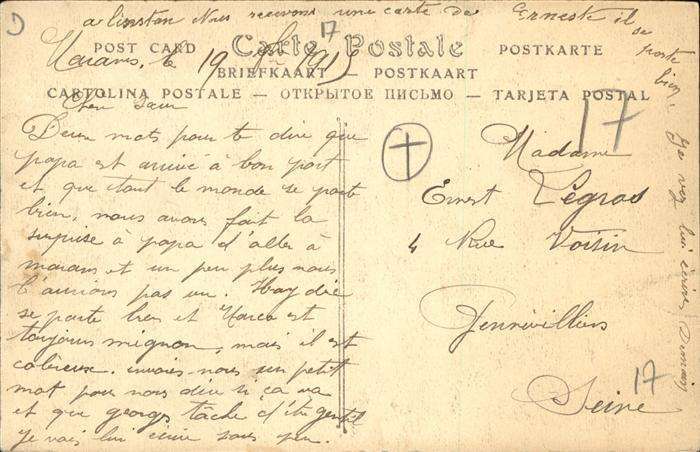 a l'instant Nous recevons une carte de Ernest il
se porte
bien. Je vais lui écrire Demain
17
POST CARD Carte Postale POSTKARTE
Marans, le 19 1915
BRIEFKAART — POSTKAART
CARTOLINA POSTALE — ОТКРЫТОЕ ПИСЬМО — TARJETA POSTAL
Chère Sœur
Deux mots pour te dire que
papa est arrivé à bon port
et que tout le monde se porte
bien, nous avons fait la
surprise à papa d'aller à
marans et un peu plus nous
l'aurions pas vu.
se porte bien et Marco est
toujours mignon, mais il est
colereux. envois-nous un petit
mot pour nous dire si ça va
et que georges tâche d'être gentil
je vais lui écrire sous peu.
17
Madame
Ernest Legras
4 Rue Voisin
Gennevilliers
Seine
17